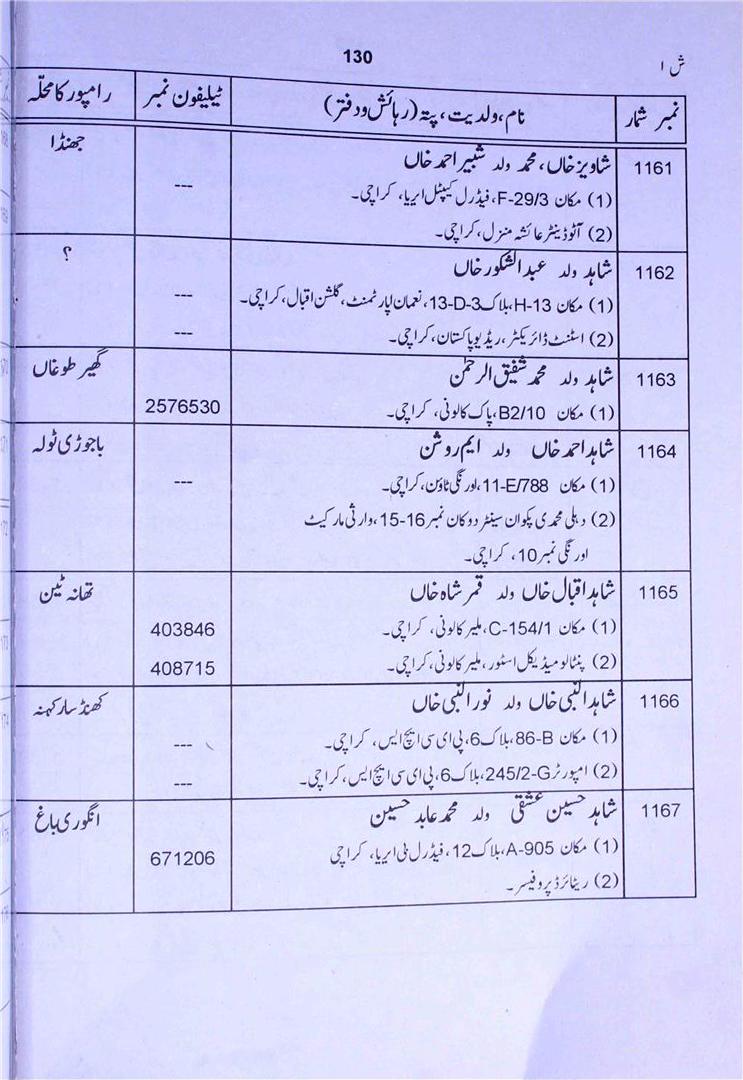 130
ش ا
نمبر شمار نام، ولدیت، پتہ (رہائش و دفتر) ٹیلیفون نمبر رامپور کا محلّہ
1161 شاویز خاں، محمد ولد شبیر احمد خاں جھنڈا
(1) مکان F-29/3، فیڈرل کیپٹل ایریا، کراچی۔ ---
(2) آٹو ڈینٹر عائشہ منزل، کراچی۔
1162 شاہد ولد عبدالشکور خاں ؟
(1) مکان H-13، بلاک 13-D-3، نعمان اپارٹمنٹ، گلشن اقبال، کراچی۔ ---
(2) اسٹنٹ ڈائریکٹر، ریڈیو پاکستان، کراچی۔ ---
1163 شاہد ولد محمد شفیق الرحمٰن گھیر طوغاں
(1) مکان B2/10، پاک کالونی، کراچی۔ 2576530
1164 شاہد احمد خاں ولد ایم روشن باجوڑی ٹولہ
(1) مکان 11-E/788، اورنگی ٹاؤن، کراچی۔ ---
(2) دہلی محمدی پکوان سینٹر دوکان نمبر 16-15، وارثی مارکیٹ
اورنگی نمبر 10، کراچی۔
1165 شاہد اقبال خاں ولد قمر شاہ خاں تھانہ ٹین
(1) مکان C-154/1، ملیر کالونی، کراچی۔ 403846
(2) پنٹالو میڈیکل اسٹور، ملیر کالونی، کراچی۔ 408715
1166 شاہد النبی خاں ولد نور النبی خاں کھنڈسار کہنہ
(1) مکان 86-B، بلاک 6، پی ای سی ایچ ایس، کراچی۔ ---
(2) امپورٹر 245/2-G، بلاک 6، پی ای سی ایچ ایس، کراچی۔ ---
1167 شاہد حسین عشقی ولد محمد عابد حسین انگوری باغ
(1) مکان A-905، بلاک 12، فیڈرل بی ایریا، کراچی 671206
(2) ریٹائرڈ پروفیسر۔